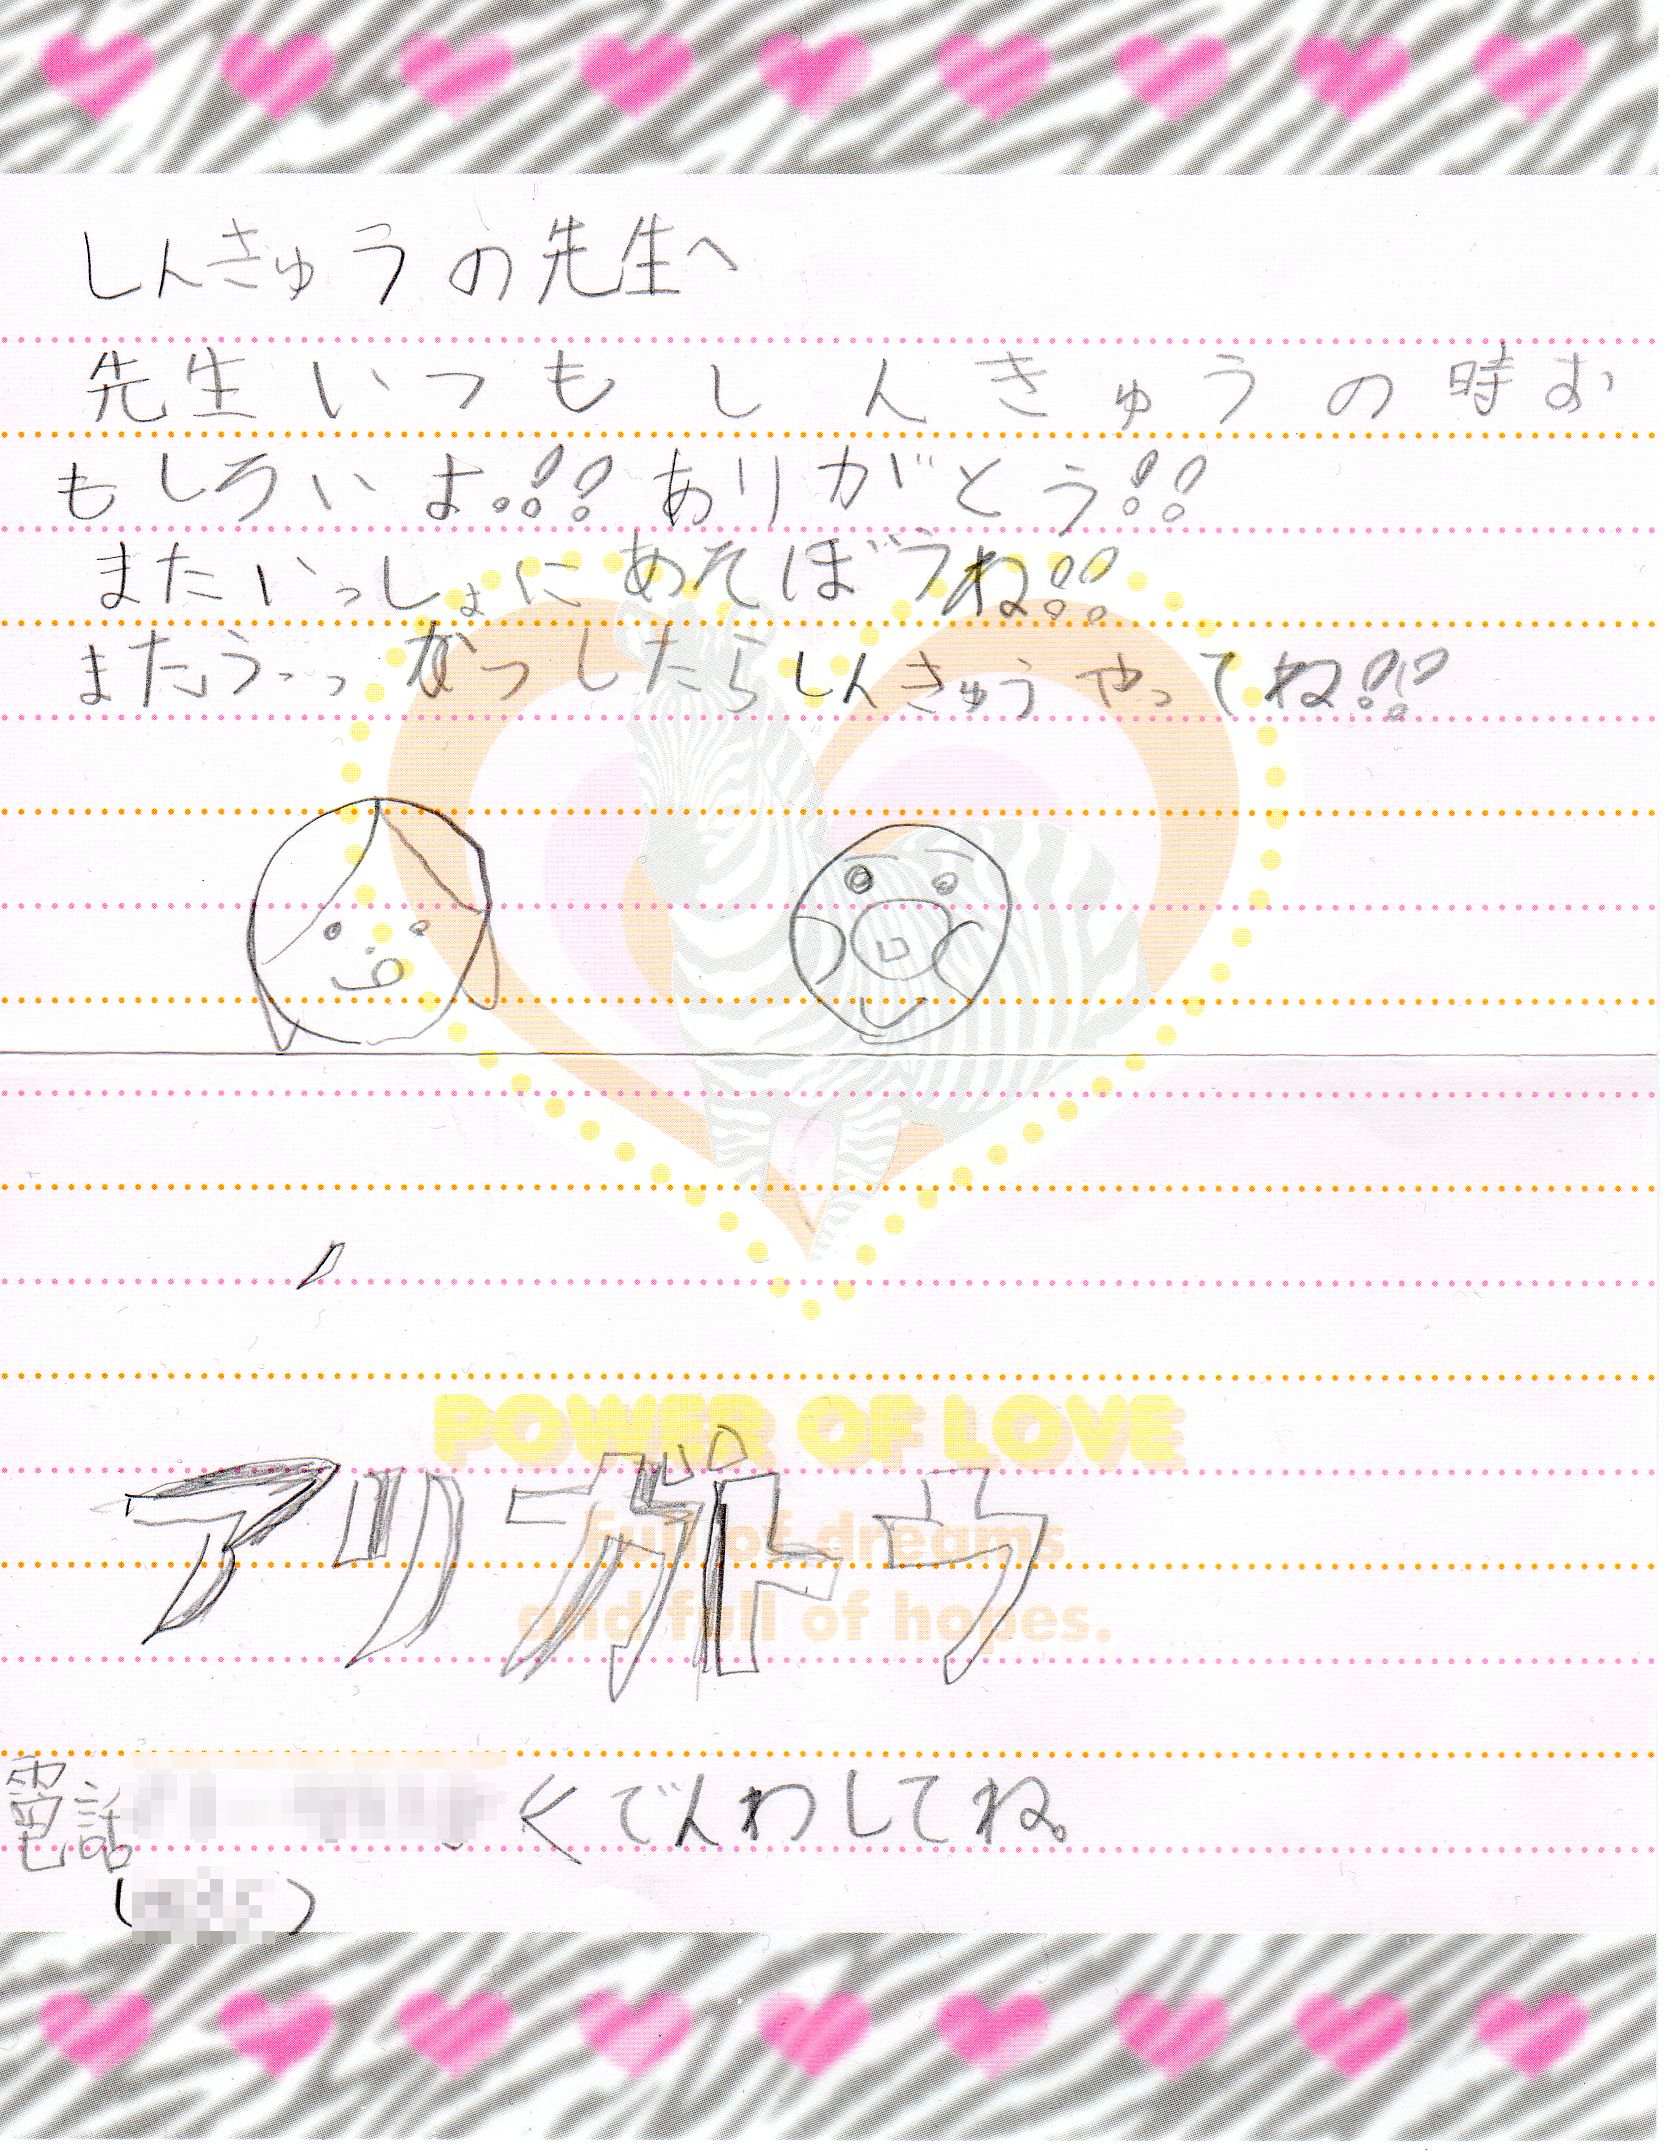 しんきゅうの先生へ
先生いつもしんきゅうの時お
もしろいよ!!!ありがとう!!
またいっしょにあそぼうね!!
またうっっかつしたらしんきゅうやってね!!
POWER OF LOVE
full of dreams
and full of hopes.
アリガトウ
電話
くでんわしてね。
( )